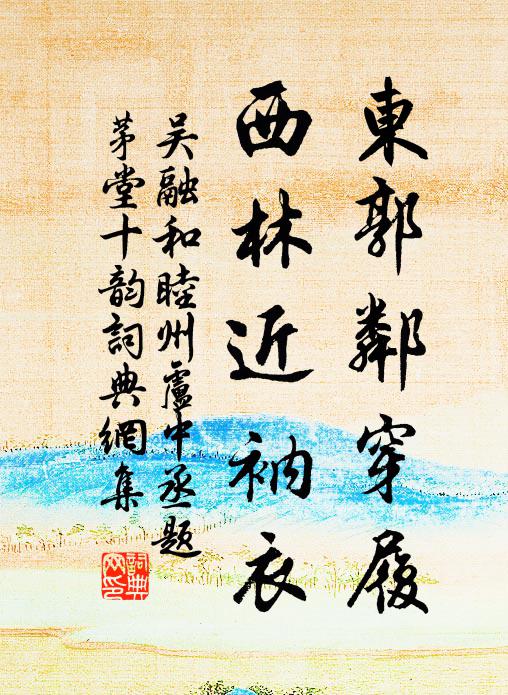 東郭鄰穿履
西林近衲衣
吴融和睦州盧中丞題
茅堂十韵詞典網集
詞典
文印